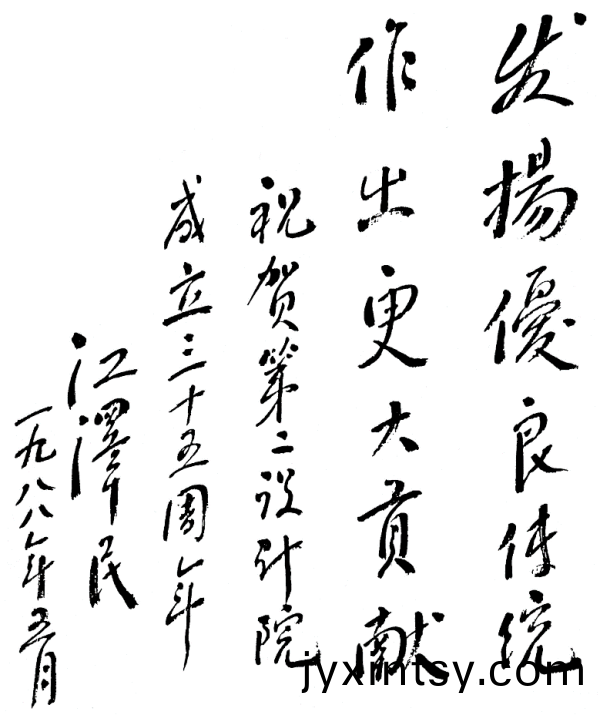 发揚優良传统
作出更大贡献
祝贺第二设计院
成立三十五周年
江澤民
一九八八年五月
jyxintsy.com